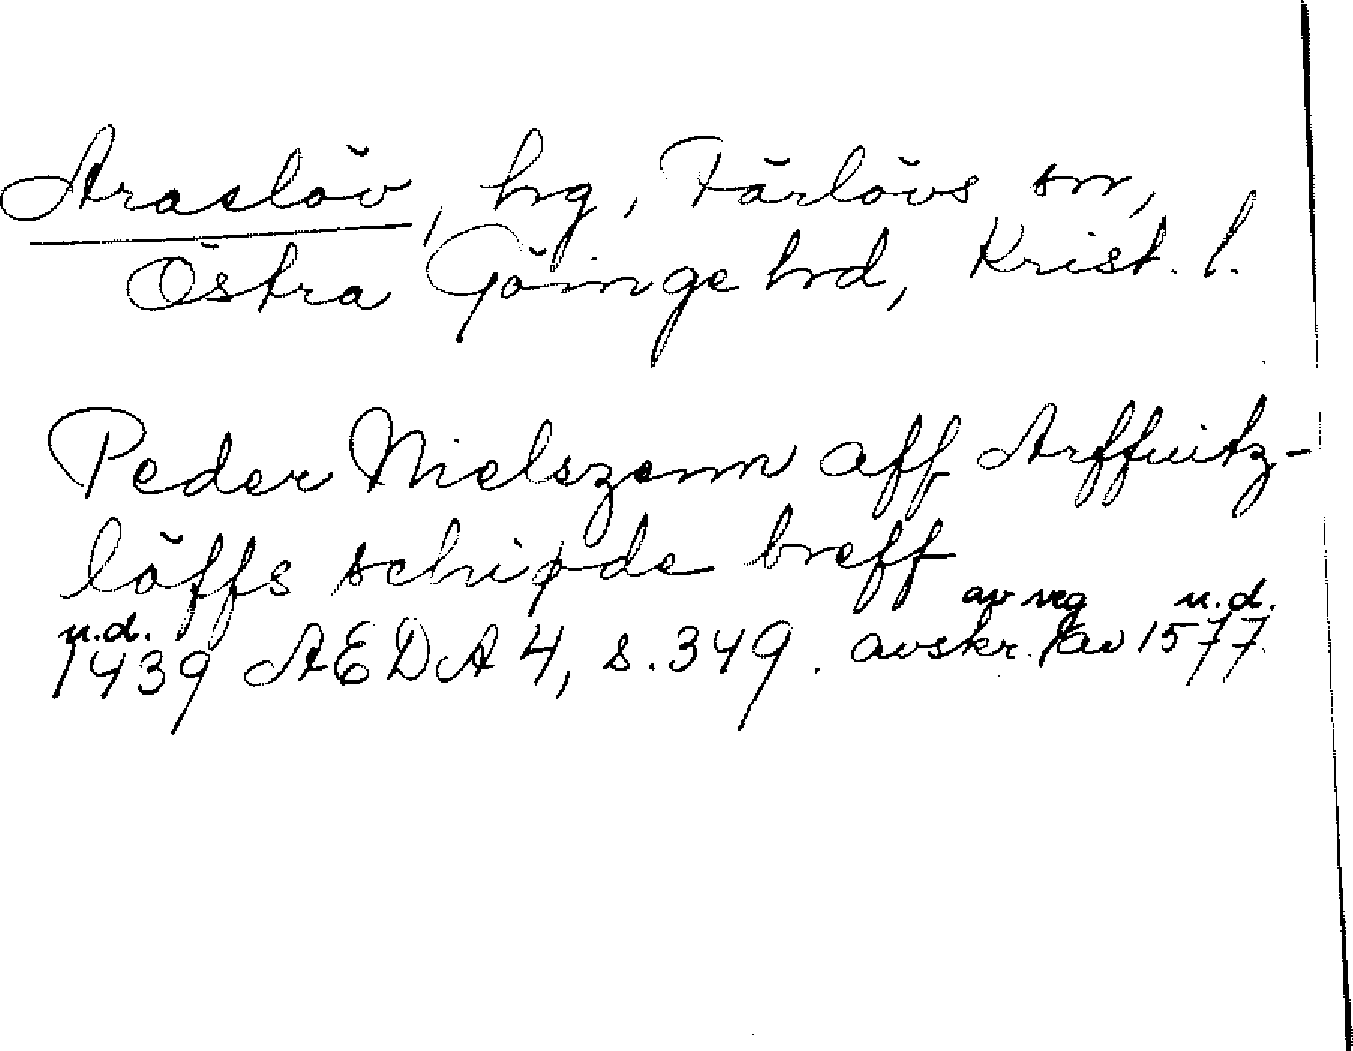 Araslöv, hg, Färlövs sn,
Östra Göinge hrd, Krist. l.
Peder Nielszenn aff Arffuitz-
löffs schiøde breff
u.d. av reg u.d.
1439 AEDA 4, s. 349. avskr. av 1577.